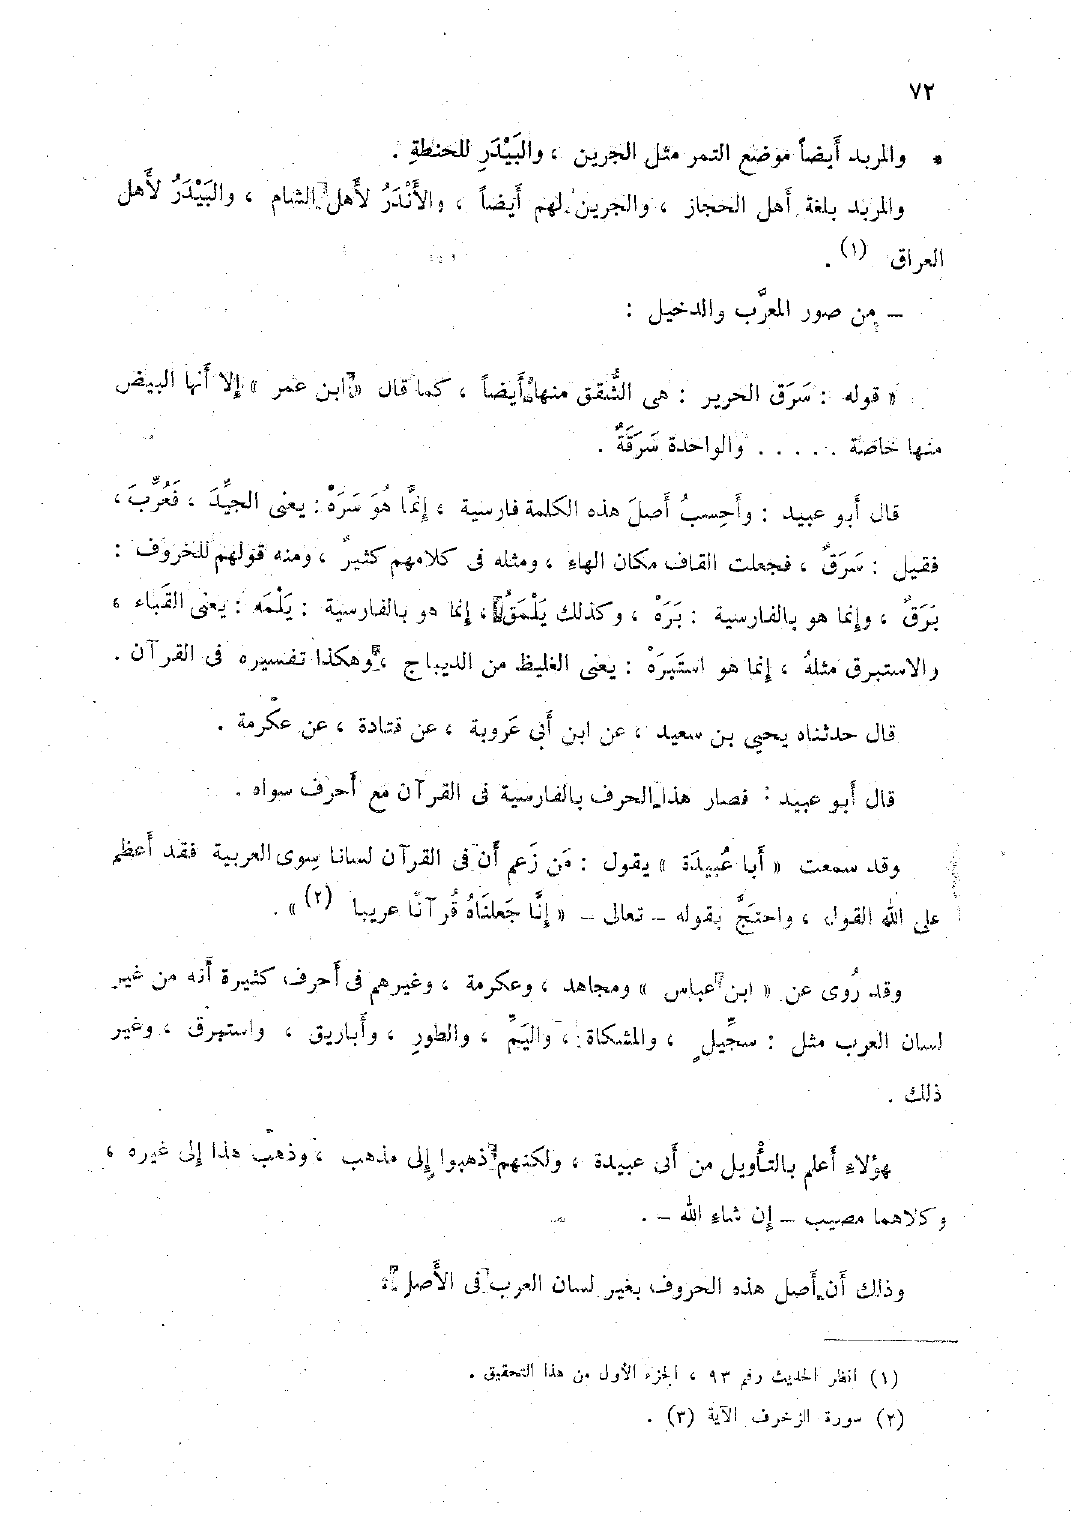 ٧٢
• والمربد أيضاً موضع التمر مثل الجرين ، والبَيْدَرِ للحنطةِ .
والمربد بلغة أهل الحجاز ، والجرين لهم أيضاً ، والأَنْدَرُ لأهل الشام ، والبَيْدَرُ لأهل
العراق (١) .
– من صور المعرَّب والدخيل :
« قوله : سَرَق الحرير : هى الشُّقق منها أيضاً ، كما قال « ابن عمر » إلا أنها البيض
منها خاصة . . . . . والواحدة سَرَقَةٌ .
قال أبو عبيد : وأَحِسبُ أصلَ هذه الكلمة فارسية ، إنَّما هُوَ سَرَهْ : يعنى الجيِّدَ ، فَعُرِّبَ ،
فقيل : سَرَقٌ ، فجعلت القاف مكان الهاءِ ، ومثله فى كلامهم كثيرٌ ، ومنه قولهم للخروف :
بَرَقٌ ، وإنما هو بالفارسية : بَرَهْ ، وكذلك يَلْمَقُ ، إنما هو بالفارسية : يَلْمَه : يعنى القَباء ،
والاستبرق مثلهُ ، إنما هو استَبرَهْ : يعنى الغليظ من الديباج ، وهكذا تفسيره فى القرآن .
قال حدثناه يحيى بن سعيد ، عن ابن أَبى عَروبة ، عن قتادة ، عن عكْرمة .
قال أبو عبيد : فصار هذا الحرف بالفارسية فى القرآن مع أحرف سواه .
وقد سمعت « أَبا عُبيدَة » يقول : مَن زَعم أن فى القرآن لسانا سِوى العربية فقد أَعظم
على الله القول ، واحتجَّ بقوله – تعالى – « إِنَّا جَعلنَاهُ قُرآنًا عربيا (٢) » .
وقد رُوى عن « ابن عباس » ومجاهد ، وعكرمة ، وغيرهم فى أحرف كثيرة أنه من غير
لسان العرب مثل : سجِّيلٍ ، والمشكاة ، واليَمِّ ، والطورِ ، وأَباريق ، واستبرق ، وغير
ذلك .
فهؤلاءِ أَعلم بالتأْويل من أبى عبيدة ، ولكنهم ذهبوا إلى مذهب ، وذهب هذا إلى غيره ،
وكلاهما مصيب – إن شاءَ الله – .
وذلك أن أصل هذه الحروف بغير لسان العرب فى الأَصل ،
(١) انظر الحديث رقم ٩٣ ، الجزء الأول من هذا التحقيق .
(٢) سورة الزخرف الآية (٣) .